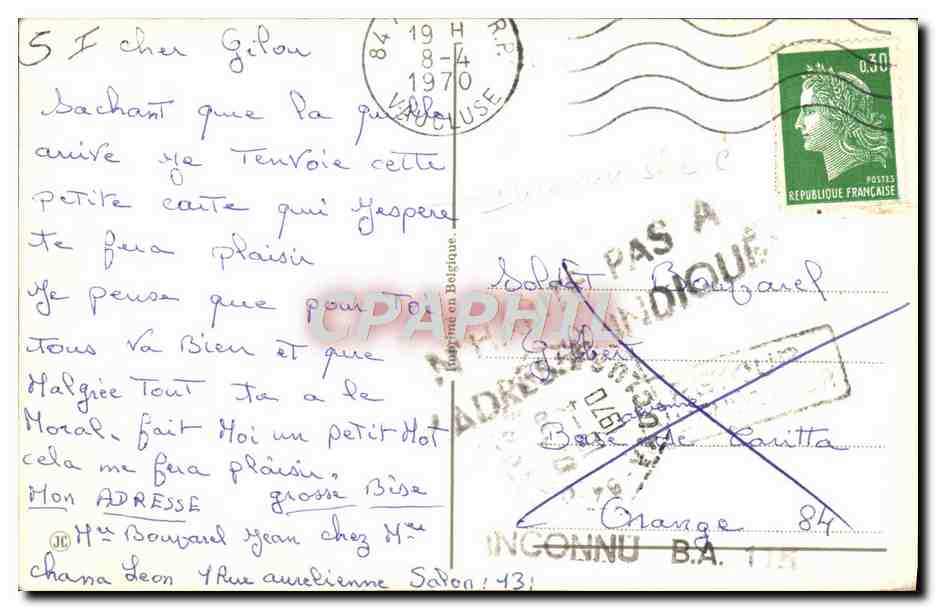 5 I cher Gilou
Sachant que la quille
arrive Je T'envoie cette
petite carte qui J'espere
te fera plaisir
Je pense que pour Toi
tous va Bien et que
Malgrée Tout ta a le
Moral. fait Moi un petit Mot
cela me fera plaisir.
Mon ADRESSE grosse Bise
Mr Bouzarel Jean chez Mme
chana Leon 1 Rue aurelienne Salon. 13.
JC
Imprimé en Belgique.
84
19 H
8-4
1970
R.P.
VAUCLUSE
0,30
POSTES
REPUBLIQUE FRANÇAISE
N'H PAS A
L'ADRESSE INDIQUÉE
Soldat Bouzarel
Gilbert
Base de Caritta
Orange 84
1970
INCONNU B.A. 115
CPAPHIL